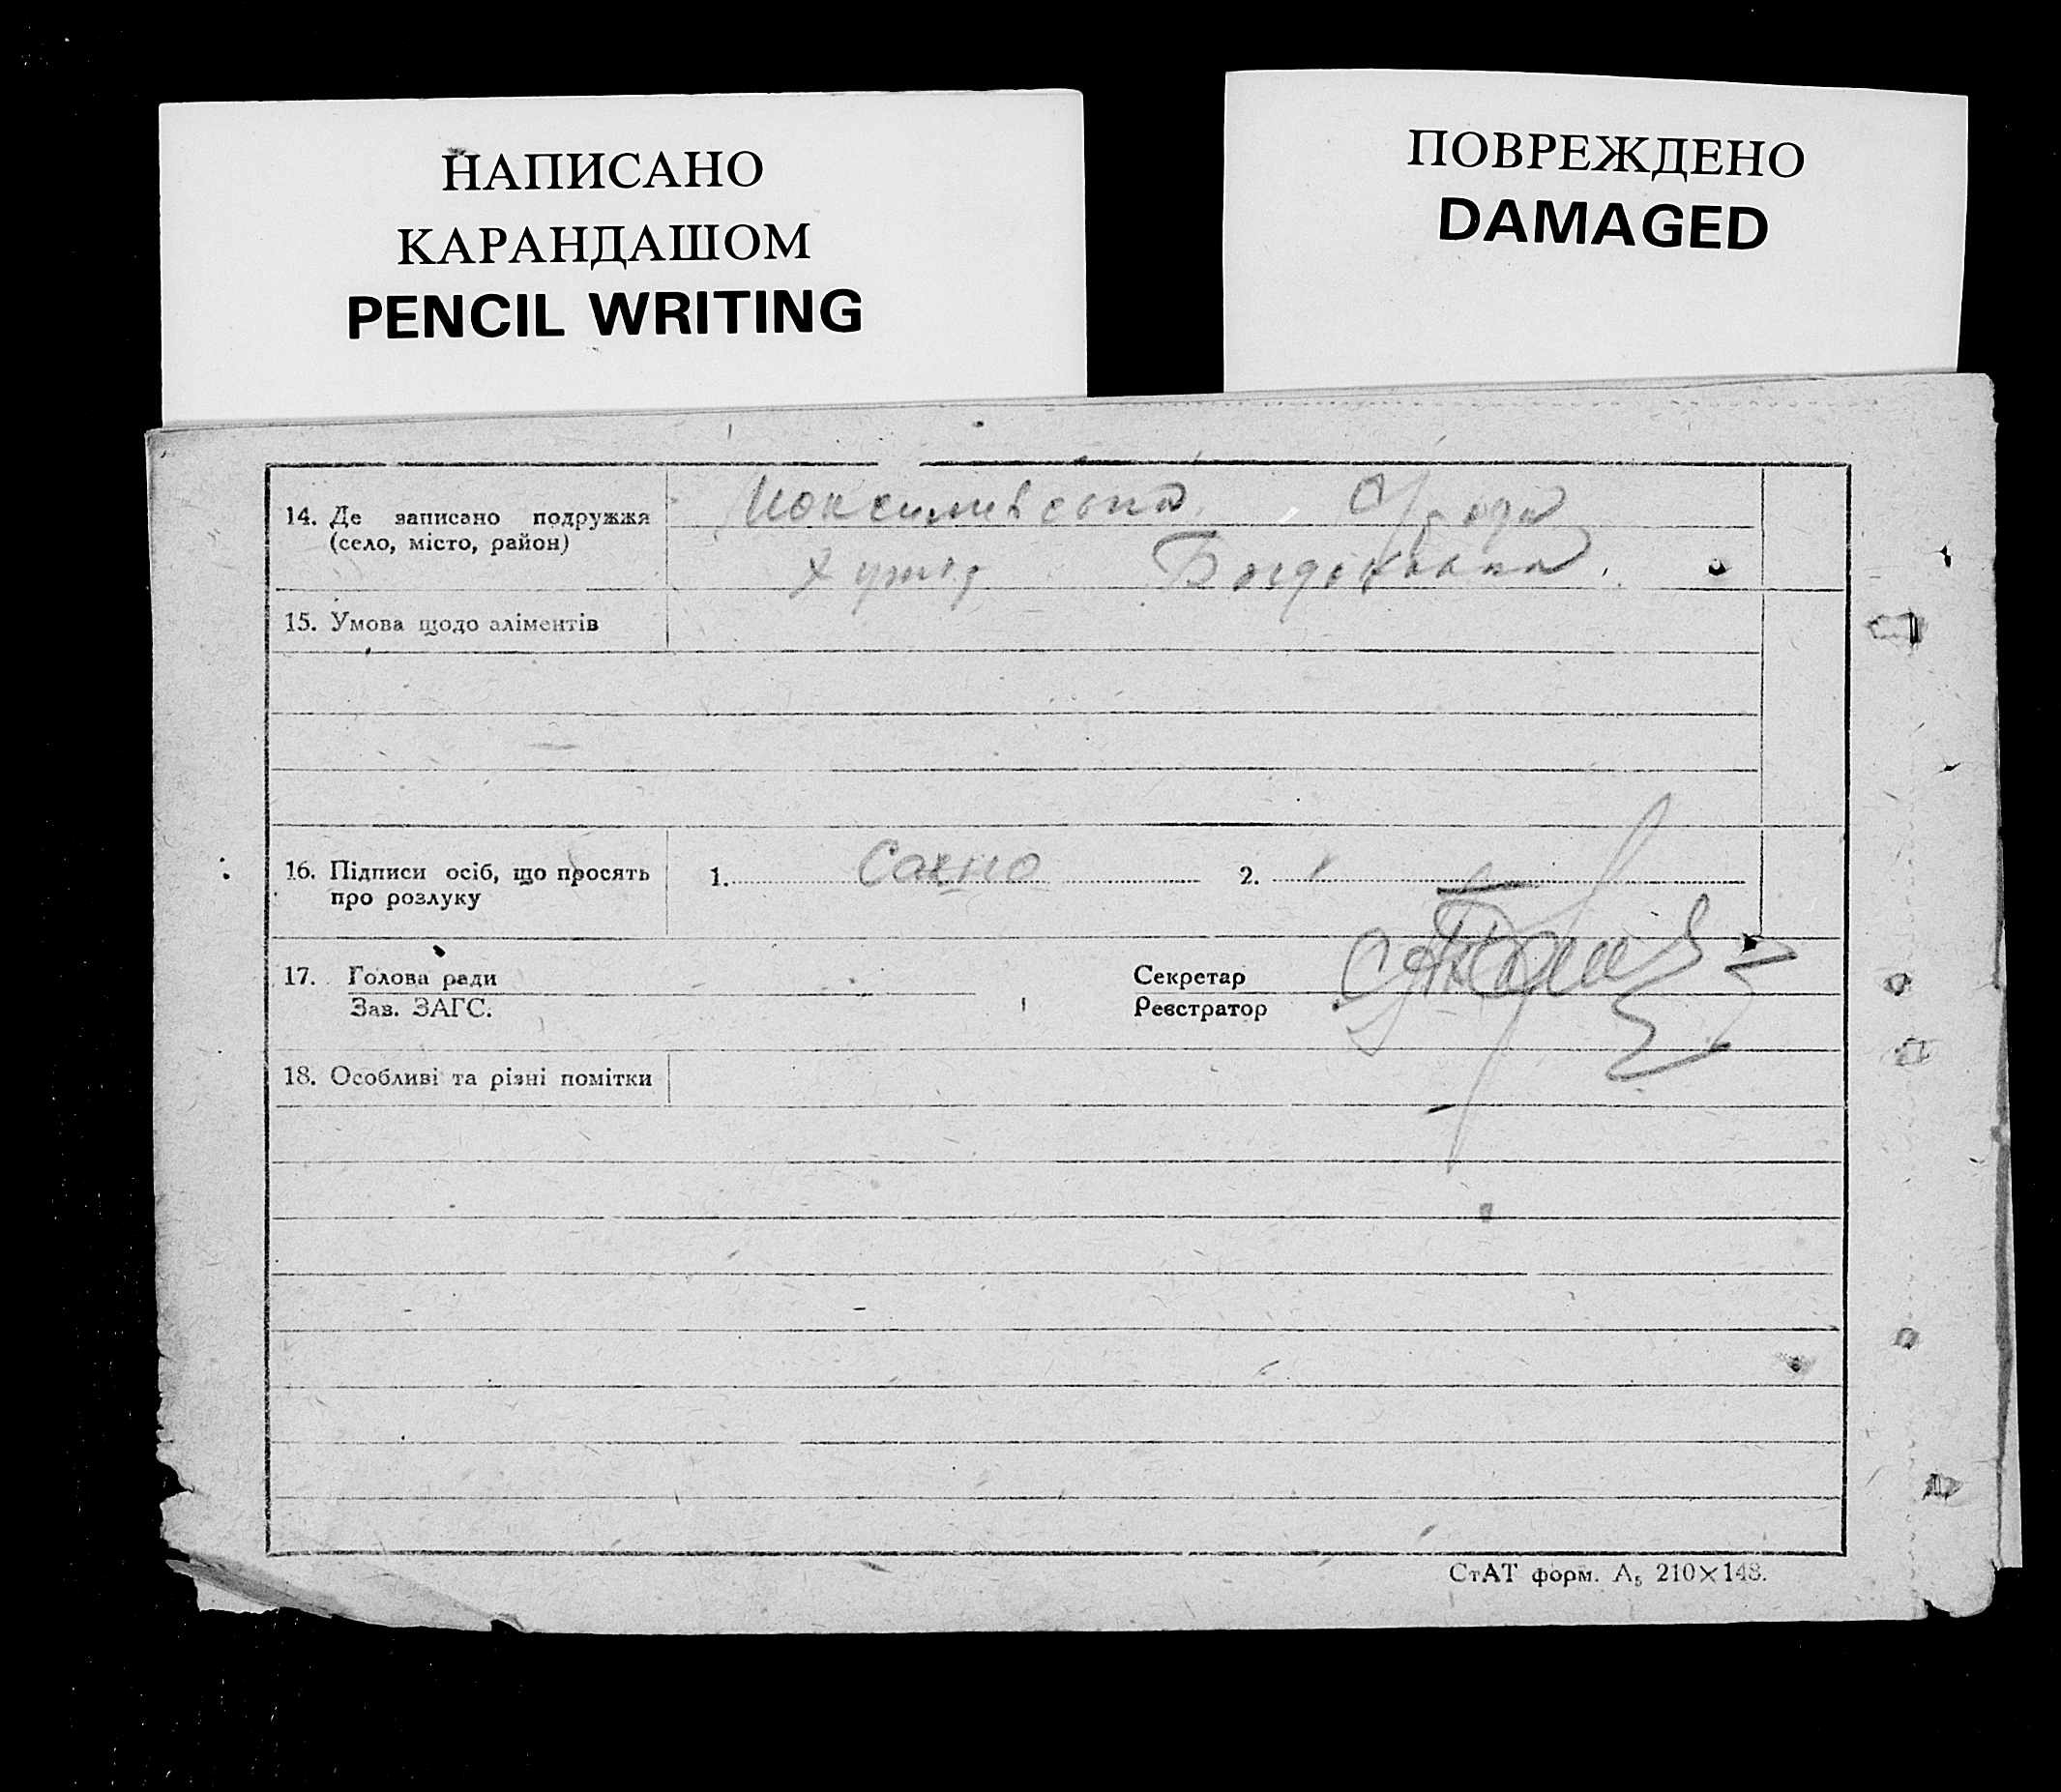 НАПИСАНО
КАРАНДАШОМ
PENCIL WRITING
ПОВРЕЖДЕНО
DAMAGED
14. Де записано подружжя
(село, місто, район)
хутор
15. Умова щодо аліментів
16. Підписи осіб, що просять
про розлуку
1. Сахно 2.
17. Голова ради Секретар
Зав. ЗАГС. Реєстратор
18. Особливі та різні помітки
СтАТ форм. А₅ 210×148.